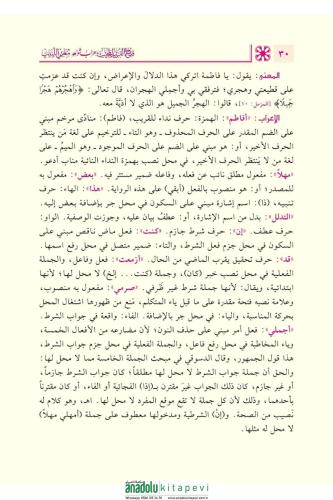 ٣٠
المعنى: يقول: يا فاطمة اتركي هذا الدلال والإعراض، وإن كنت قد عزمتِ
على قطيعتي وهجري؛ فترفقي بي وأجملي الهجران، قال تعالى: ﴿وَاهْجُرْهُمْ هَجْرًا
جَمِيلًا﴾ [المزمل: ١٠]، قالوا: الهجرُ الجميل هو الذي لا أذيَّة معه.
الإعراب: «أفاطم»: الهمزة: حرف نداء للقريب، (فاطم): منادًى مرخم مبني
على الضم المقدر على الحرف المحذوف ـ وهو التاء ـ للترخيم على لغة مَن ينتظر
الحرف الأخير، أو: هو مبني على الضم على الحرف الموجود ـ وهو الميمُ ـ على
لغة من لا يَنتظر الحرف الأخير، في محل نصب بهمزة النداء النائبة مناب أدعو.
«مهلاً»: مفعول مطلق نائب عن فعله، وفاعله ضمير مستتر فيه. «بعض»: مفعول به
للمصدر؛ أو: هو منصوب بالفعل (أبقي) على هذه الرواية. «هذا»: الهاء: حرف
تنبيه، (ذا): اسم إشارة مبني على السكون في محل جر بإضافة بعض إليه.
«التدلل»: بدل من اسم الإشارة، أو: عطفُ بيان عليه، وجوزت الوصفية. الواو:
حرف عطف. «إن»: حرف شرط جازم. «كنت»: فعل ماض ناقص مبني على
السكون في محل جزم فعل الشرط، والتاء: ضمير متصل في محل رفع اسمها.
«قد»: حرف تحقيق يقرب الماضي من الحال. «أزمعت»: فعل وفاعل، والجملة
الفعلية في محل نصب خبر (كان)، وجملة (كنت... إلخ) لا محل لها؛ لأنها
ابتدائية، ويقال: لأنها جملة شرط غير ظرفي. «صرمي»: مفعول به منصوب،
وعلامة نصبه فتحة مقدرة على ما قبل ياء المتكلم، مَنع من ظهورها اشتغال المحل
بحركة المناسبة، والياء: في محل جر بالإضافة. الفاء: واقعة في جواب الشرط.
«أجملي»: فعل أمر مبني على حذف النون؛ لأن مضارعه من الأفعال الخمسة،
وياء المخاطبة في محل رفع فاعل، والجملة الفعلية في محل جزم جواب الشرط،
هذا قول الجمهور، وقال الدسوقي في مبحث الجملة الخامسة مما لا محل لها:
والحق أن جملة جواب الشرط لا محل لها مطلقاً؛ كان جواب الشرط جازماً،
أو غير جازم، كان ذلك الجواب غيرَ مقترن بـ(إذا) الفجائية أو الفاء، أو كان مقترناً
بأحدهما، وذلك لأن كل جملة لا تقع موقع المفرد لا محل لها. اهـ، وهو كلام له
نَصيب من الصحة. و(إنْ) الشرطية ومدخولها معطوف على جملة (أمهلي مهلاً)
لا محل له مثلها.
anadolukitapevi